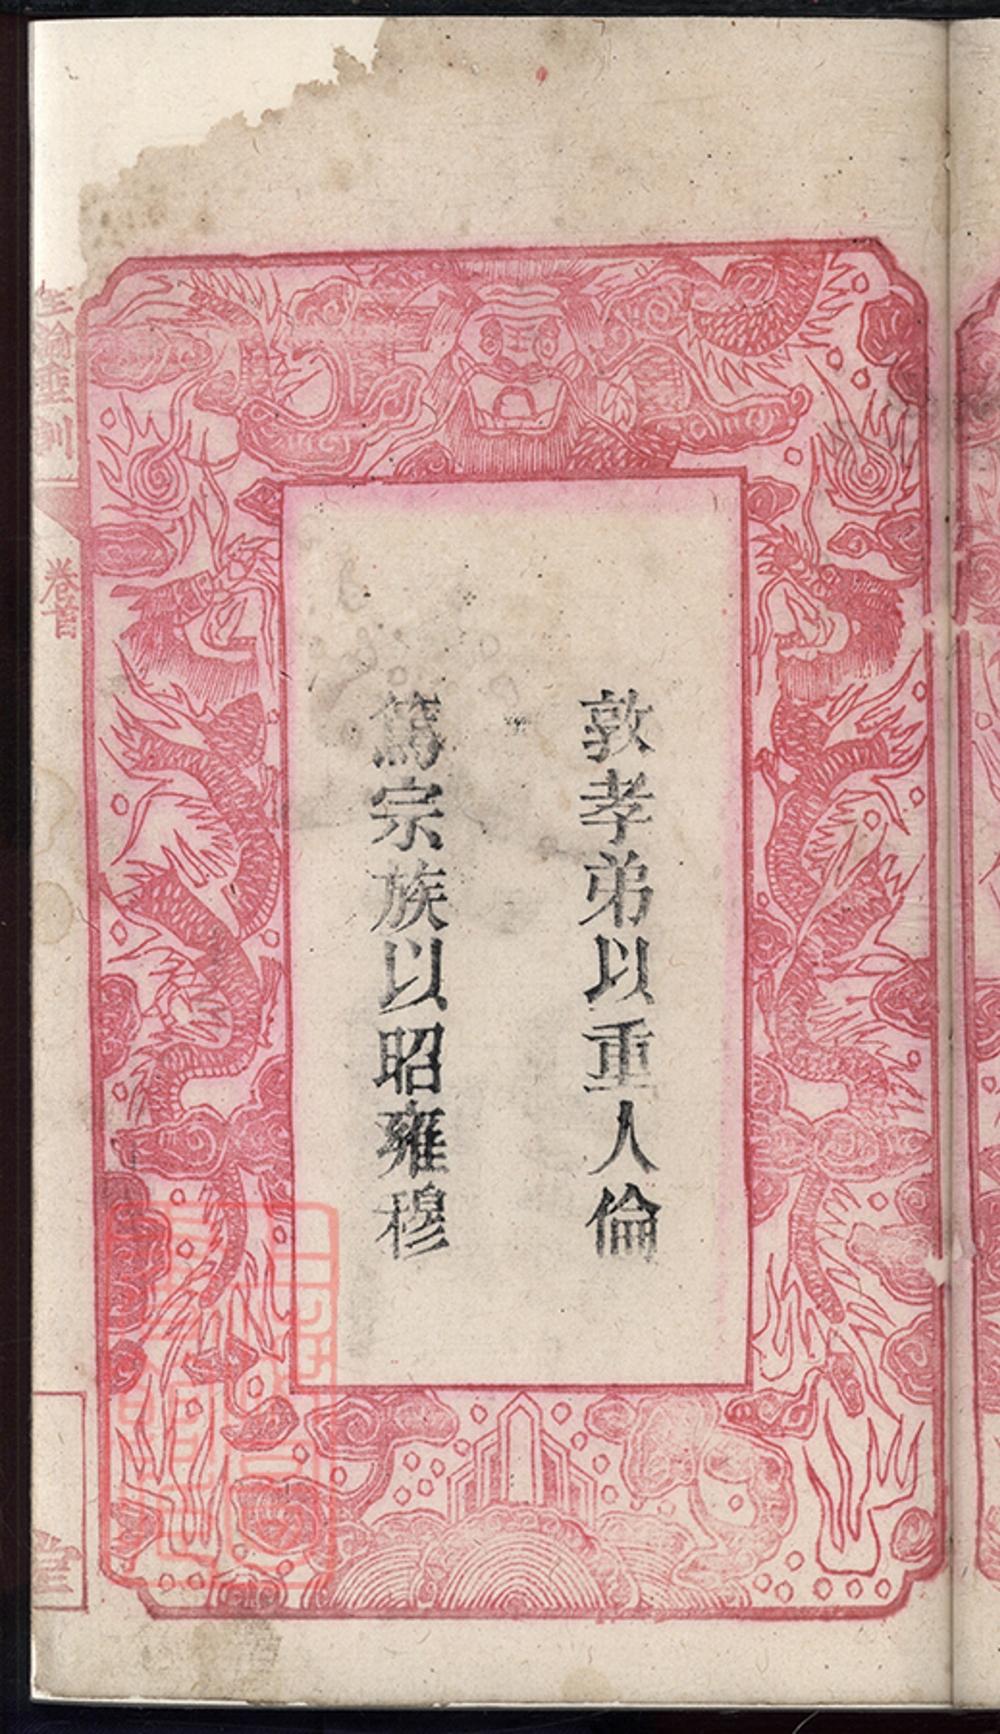 敦孝弟以重人倫
篤宗族以昭雍穆
聖諭垂訓
卷首
堂